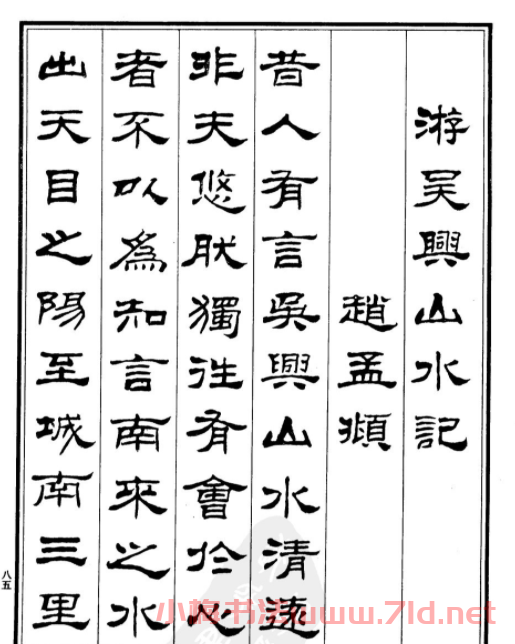 游吳興山水記
趙孟頫
昔人有言吳興山水清遠
非夫悠肰獨往有會於心
者不以爲知言南來之水
出天目之陽至城南三里
八五
小楷书法www.7ld.net